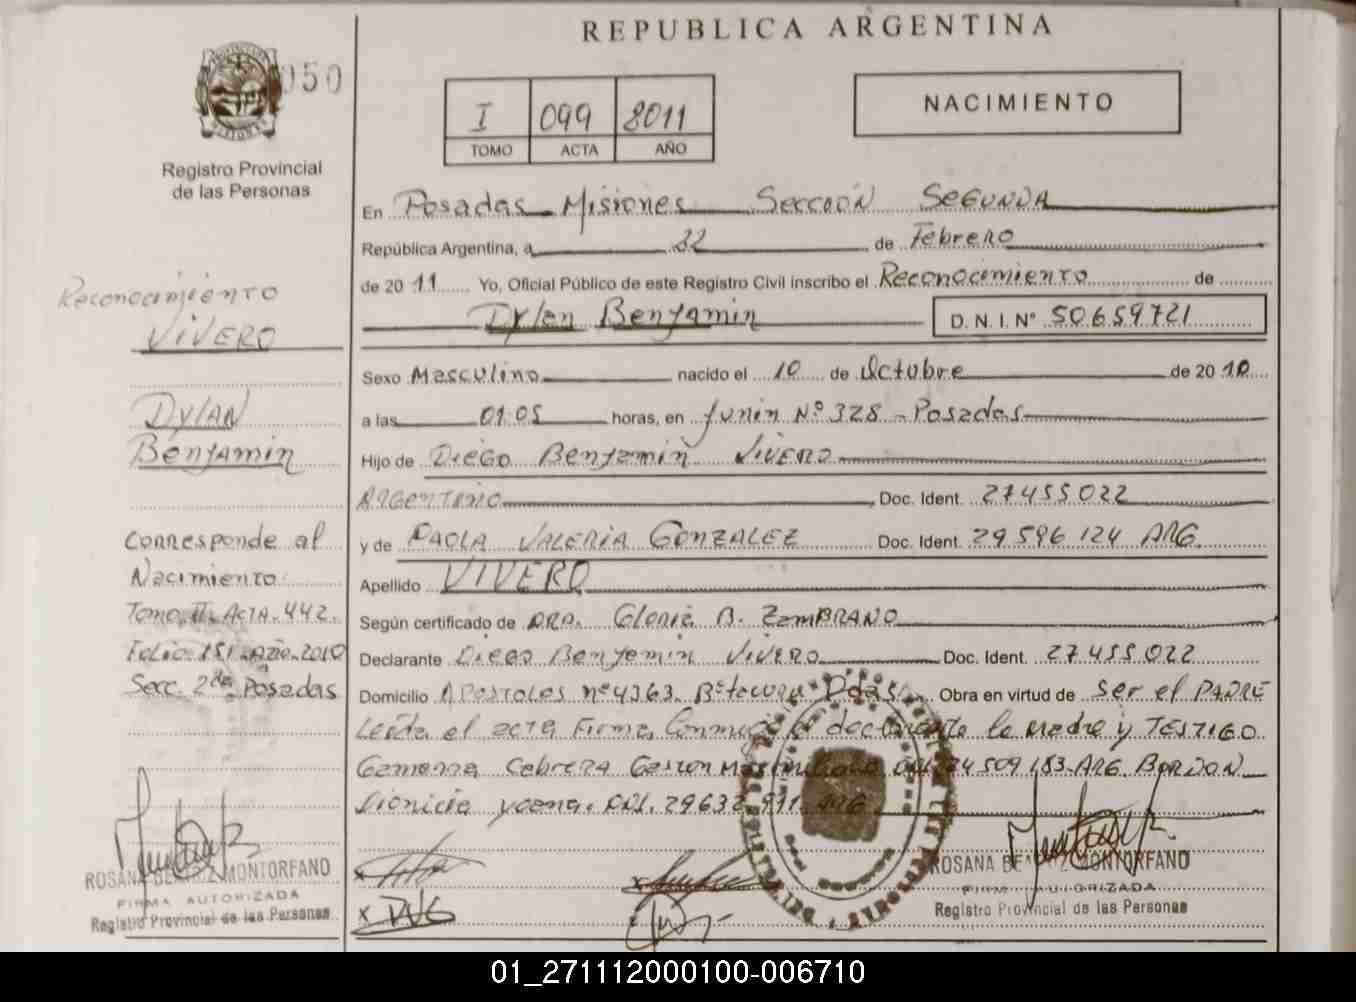 REPUBLICA ARGENTINA
050
I 099 2011
TOMO ACTA AÑO
NACIMIENTO
Registro Provincial
de las Personas
En Posadas Misiones Sección Segunda
República Argentina, a 22 de Febrero
de 20 11 Yo, Oficial Público de este Registro Civil inscribo el Reconocimiento de
Dylan Benjamin D. N. I. N° 50659721
Sexo Masculino nacido el 10 de Octubre de 20 10
a las 01.05 horas, en Junin N° 328 - Posadas
Hijo de Diego Benjamin Vivero
Argentino Doc. Ident. 27455022
y de Paola Valeria Gonzalez Doc. Ident. 29 596 124 ARG.
Apellido VIVERO
Según certificado de DRA. Gloria B. Zambrano
Declarante Diego Benjamin Vivero Doc. Ident. 27455022
Domicilio Apostoles n° 4363 Obra en virtud de ser el PADRE
Leída el acta Firma Conmigo el declarante la madre y TESTIGO
Cabrera Gaston 509 183 ARG. Bordon
Dionicia 29632 911 ARG
Reconocimiento
VIVERO
DYLAN
Benjamin
Corresponde al
Nacimiento
Tomo II. Acta. 442.
Folio. 151. Año. 2010
Secc. 2da Posadas
ROSANA BEATRIZ MONTORFANO
FIRMA AUTORIZADA
Registro Provincial de las Personas
ROSANA BEATRIZ MONTORFANO
FIRMA AUTORIZADA
Registro Provincial de las Personas
01_271112000100-006710